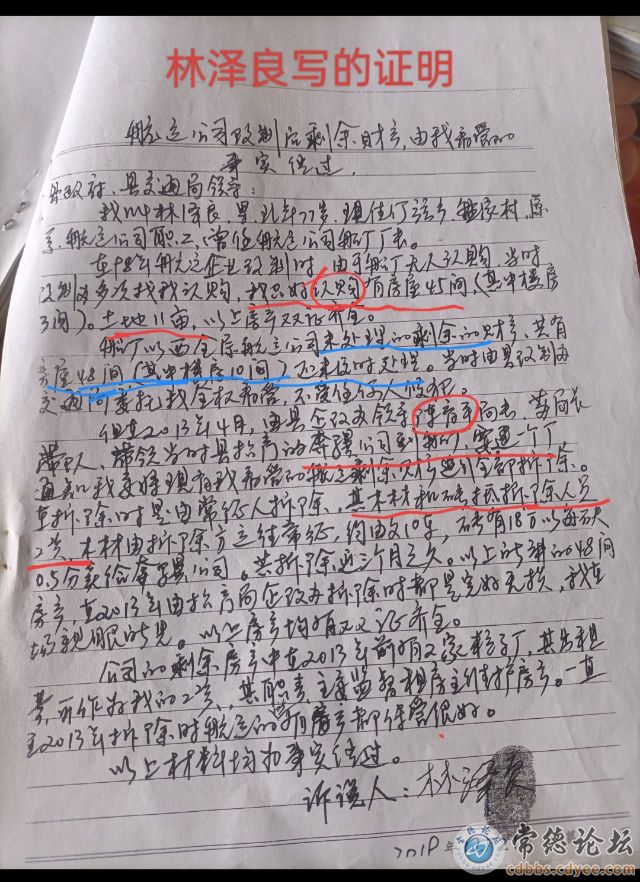 林泽良写的证明
航运公司改制后剩余财产,由我看管的
事实经过
县政府、县交通局领导:
我叫林泽良,男,现年77岁,现住 村,原
系航运公司职工,曾任航运公司船厂厂长。
在98年航运企业改制时,由于船厂无人认购,当时
改制办多次找我认购,我只好认购有房屋45间(其中楼房
3间)。土地11亩,以上房产双证齐全。
船厂以西全原航运公司未处理的剩余的财产,共有
房屋48间(其中楼房10间)起来临时处理。当时由县改制办
交通局委托我全权看管,不准任何人侵犯。
但在2013年4月,由县企改办领导 局长
带人、带领当时县招商的 公司到船厂,
通知我要将现有我看管的航运剩余财产全部拆除。
在拆除时是由常征人拆除、其木材机砖抵拆除人员
工资,木材由拆除方运往常征,约有10车,砖有18万以每块
0.5分卖给 公司。共拆除近三个月之久。以上的 48间
房产,在2013年由招商局企改办拆除时都是完好无损,我在
场亲眼所见。以上房产均有双证齐全。
公司的剩余房产中在2013年前有2家粉厂,其房租
费,可作为我的工资,其职责主要监督租房主维护房产。一直
至2013年拆除时航运的所有房产都保管很好。
以上材料均为事实经过。
诉说人:林泽良
2018年
常德论坛
cdbbs.cdyee.com